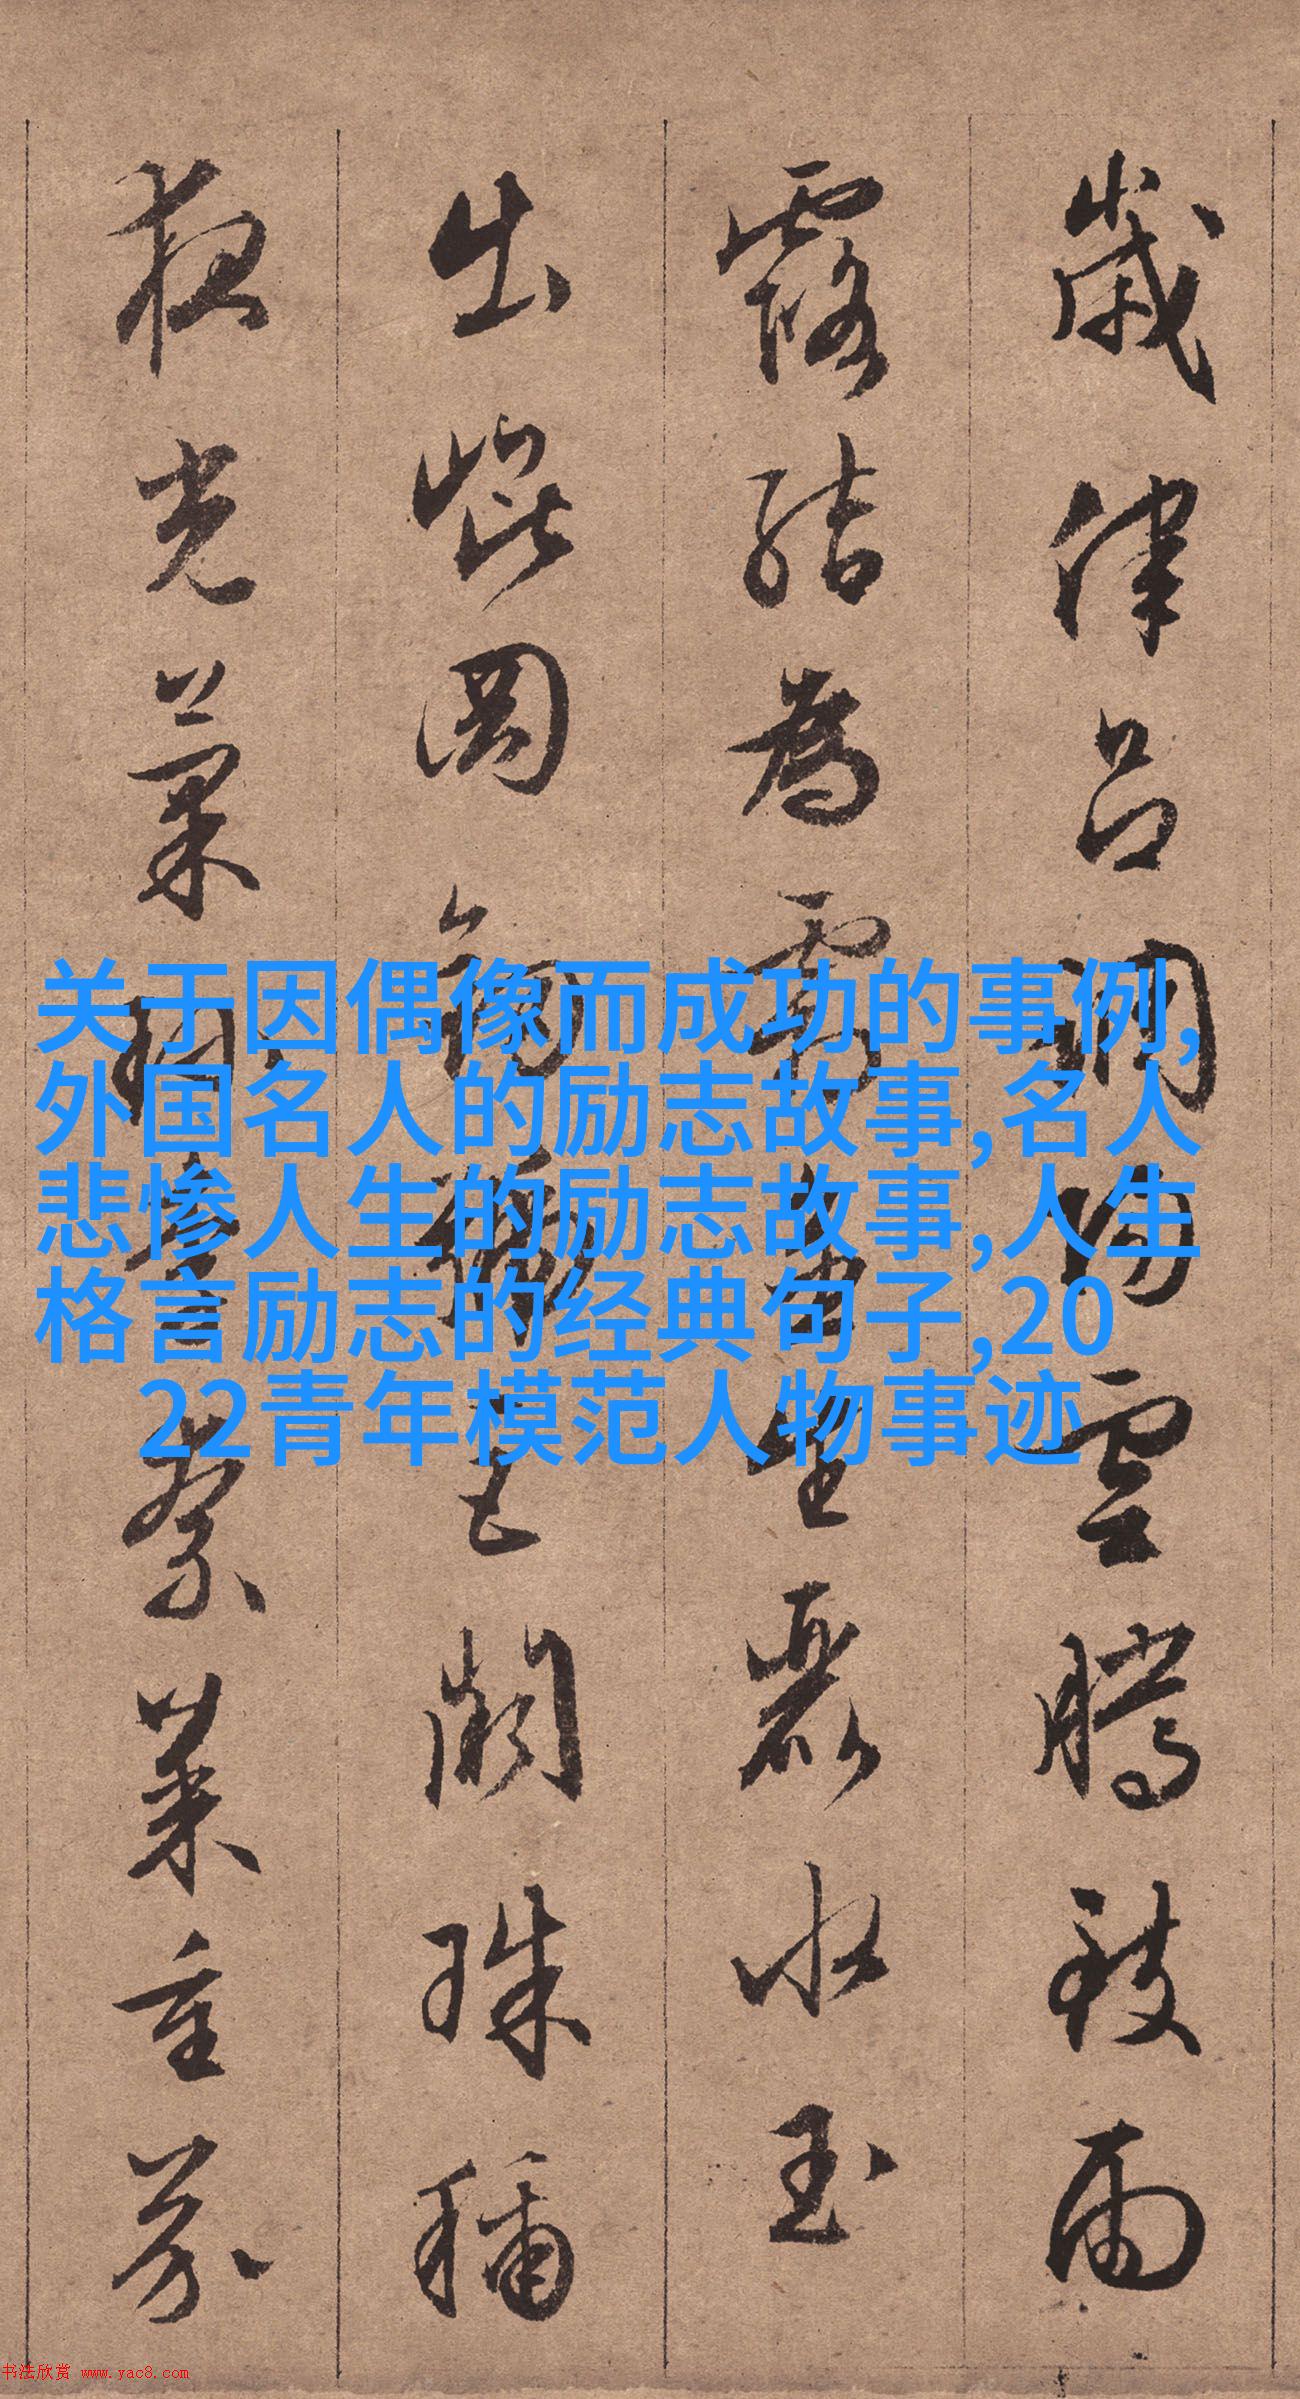 歲律呂調陽雲騰致雨
露結為霜金生麗水玉
出崐岡劍號巨闕珠稱
夜光菓珎李柰菜重芥
关于因偶像而成功的事例,
外国名人的励志故事,名人
悲惨人生的励志故事,人生
格言励志的经典句子,20
22青年模范人物事迹
书法欣赏 www.yac8.com